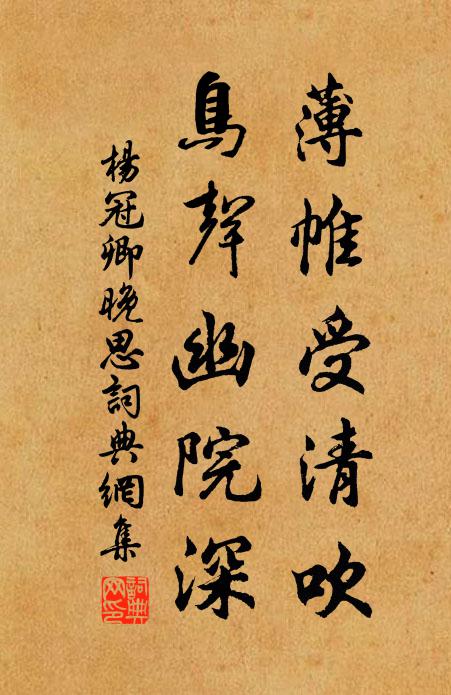 薄帷受清吹
鳥聲幽院深
楊冠卿晚思詞典網集
詞典网印